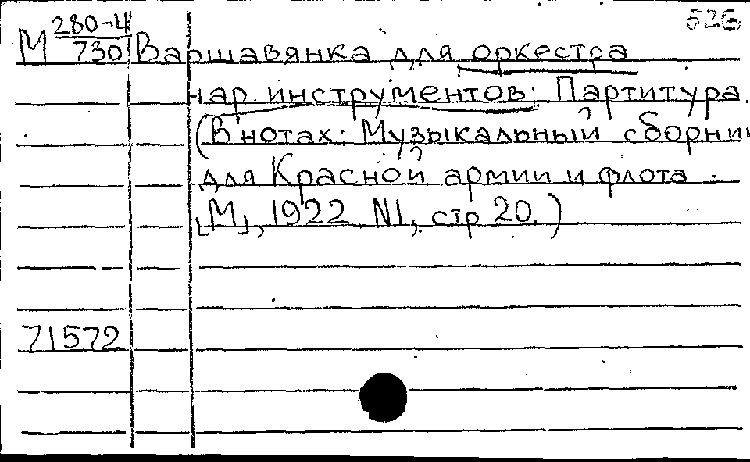 526
М 280-4/730 Варшавянка для оркестра
нар. инструментов: Партитура.
(В нотах: Музыкальный сборник
для Красной армии и флота.
[М], 1922 N1, стр 20.)
71572